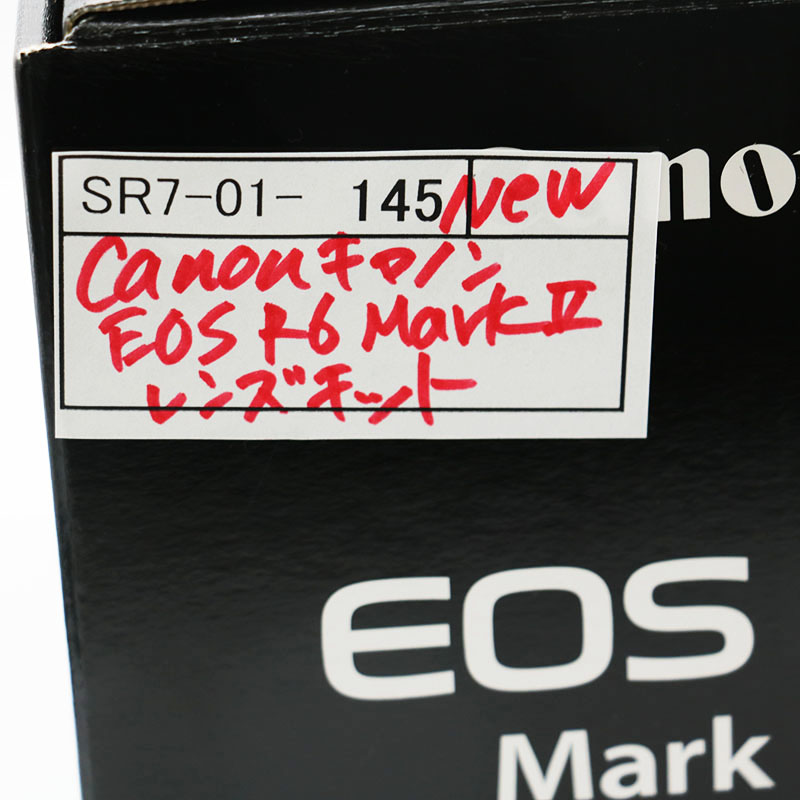 SR7-01- 145 New
Canonキャノン
EOS R6 Mark Ⅱ
レンズキット
EOS
Mark